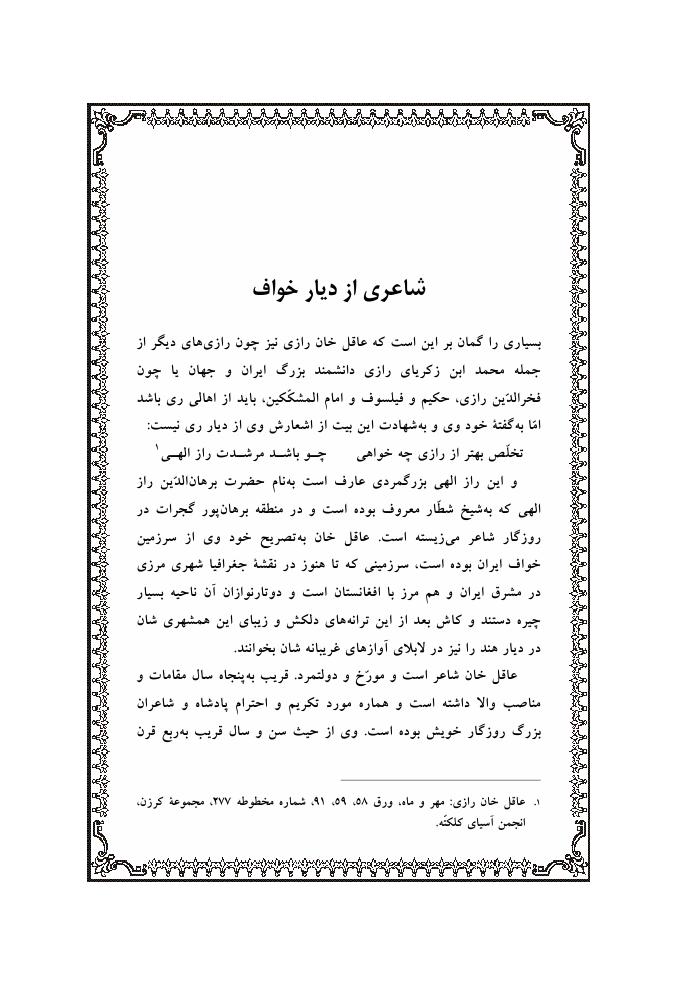 شاعری از دیار خواف
بسیاری را گمان بر این است که عاقل خان رازی نیز چون رازی‌های دیگر از
جمله محمد ابن زکریای رازی دانشمند بزرگ ایران و جهان یا چون
فخرالدّین رازی، حکیم و فیلسوف و امام المشکّکین، باید از اهالی ری باشد
امّا به‌گفتهٔ خود وی و به‌شهادت این بیت از اشعارش وی از دیار ری نیست:
تخلّص بهتر از رازی چه خواهی چـو باشـد مرشـدت راز الهـی۱
و این راز الهی بزرگمردی عارف است به‌نام حضرت برهان‌الدّین راز
الهی که به‌شیخ شطّار معروف بوده است و در منطقه برهان‌پور گجرات در
روزگار شاعر می‌زیسته است. عاقل خان به‌تصریح خود وی از سرزمین
خواف ایران بوده است، سرزمینی که تا هنوز در نقشهٔ جغرافیا شهری مرزی
در مشرق ایران و هم مرز با افغانستان است و دوتارنوازان آن ناحیه بسیار
چیره دستند و کاش بعد از این ترانه‌های دلکش و زیبای این همشهری شان
در دیار هند را نیز در لابلای آوازهای غریبانه شان بخوانند.
عاقل خان شاعر است و مورّخ و دولتمرد. قریب به‌پنجاه سال مقامات و
مناصب والا داشته است و هماره مورد تکریم و احترام پادشاه و شاعران
بزرگ روزگار خویش بوده است. وی از حیث سن و سال قریب به‌ربع قرن
۱. عاقل خان رازی: مهر و ماه، ورق ۵۸، ۵۹، ۹۱، شماره مخطوطه ۲۷۷، مجموعهٔ کرزن،
انجمن آسیای کلکتّه.